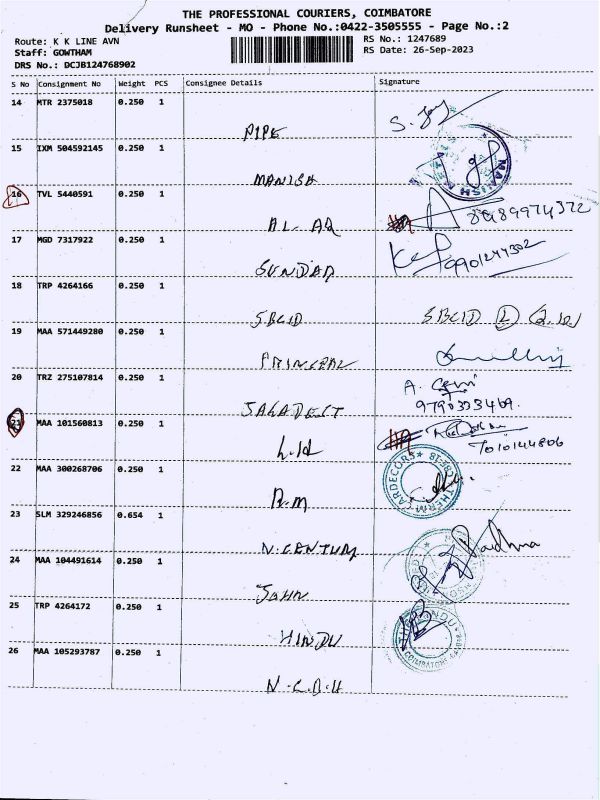 THE PROFESSIONAL COURIERS, COIMBATORE
Delivery Runsheet - MO - Phone No.:0422-3505555 - Page No.:2
Route: K K LINE AVN RS No.: 1247689
Staff: GOWTHAM RS Date: 26-Sep-2023
DRS No.: DCJB124768902
S No Consignment No Weight PCS Consignee Details Signature
14 MTR 2375018 0.250 1
PIPE
15 IXM 504592145 0.250 1
MANISH
16 TVL 5440591 0.250 1
AL AQ
17 MGD 7317922 0.250 1
SUNDAR
18 TRP 4264166 0.250 1
SBCID SBCID
19 MAA 571449280 0.250 1
PRINCEAL
20 TRZ 275107814 0.250 1
9790333469.
21 MAA 101560813 0.250 1
L.H 7010144806
22 MAA 300268706 0.250 1
R.M
23 SLM 329246856 0.654 1
N.CENTURY
24 MAA 104491614 0.250 1
JOHN
25 TRP 4264172 0.250 1
HINDU
26 MAA 105293787 0.250 1
N.C.B.H